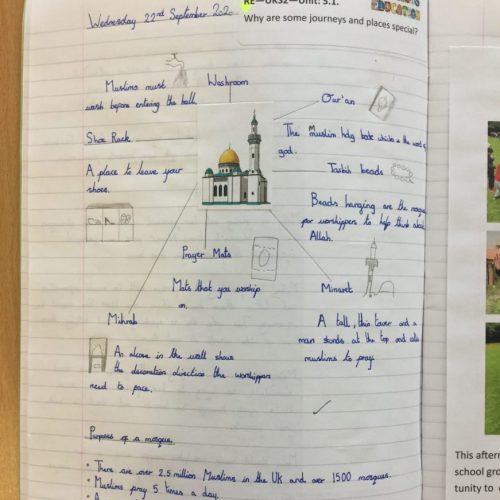 Wednesday 22nd September 202
RE—UKS2—Unit: 5.1.
EDUCATION
Why are some journeys and places special?
Muslims must
wash before entering the hall.
Washroom
Qur'an
The muslim holy book which is the word of
god.
Shoe Rack
A place to leave your
shoes.
Tasbih beads
Beads hanging are the mosque
for worshippers to help think about
Allah.
Prayer Mats
Mats that you worship
on.
Minaret
A tall, thin tower and a
man stands at the top and calls
muslims to pray
Mihrab
An alcove in the wall shows
the decoration direction the worshippers
need to face.
Purpose of a mosque.
• There are over 2.5 million Muslims in the UK and over 1500 mosques.
• Muslims pray 5 times a day.
This after
school gro
tunity to